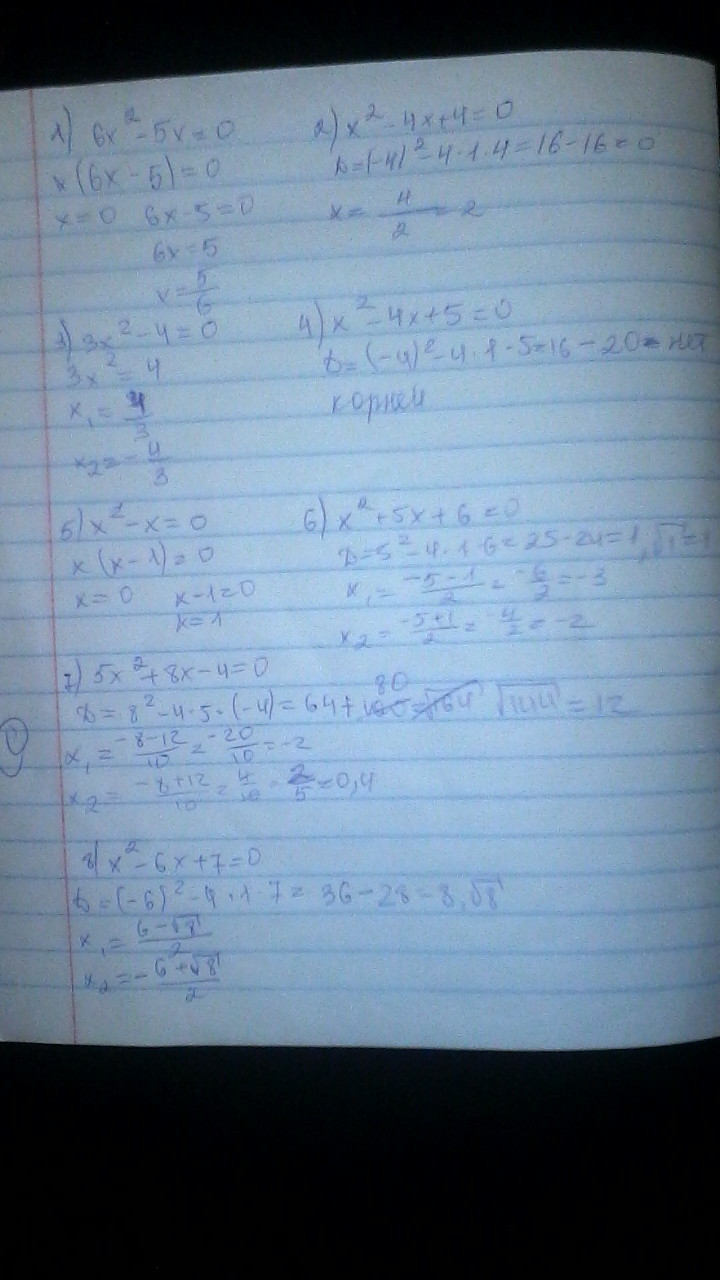 1) 6x² - 5x = 0
x(6x - 5) = 0
x = 0   6x - 5 = 0
6x = 5
x = 5/6
2) x² - 4x + 4 = 0
D = (-4)² - 4·1·4 = 16 - 16 = 0
x = 4/2 = 2
3) 3x² - 4 = 0
3x² = 4
x₁ = 4/3
x₂ = -4/3
4) x² - 4x + 5 = 0
D = (-4)² - 4·1·5 = 16 - 20 = нет
корней
5) x² - x = 0
x(x - 1) = 0
x = 0   x - 1 = 0
x = 1
6) x² + 5x + 6 = 0
D = 5² - 4·1·6 = 25 - 24 = 1, √1 = 1
x₁ = (-5-1)/2 = -6/2 = -3
x₂ = (-5+1)/2 = -4/2 = -2
7) 5x² + 8x - 4 = 0
D = 8² - 4·5·(-4) = 64 + 80 √144 = 12
x₁ = (-8-12)/10 = -20/10 = -2
x₂ = (-8+12)/10 = 4/10 = 2/5 = 0,4
8) x² - 6x + 7 = 0
D = (-6)² - 4·1·7 = 36 - 28 = 8, √8
x₁ = (6-√8)/2
x₂ = -(6+√8)/2